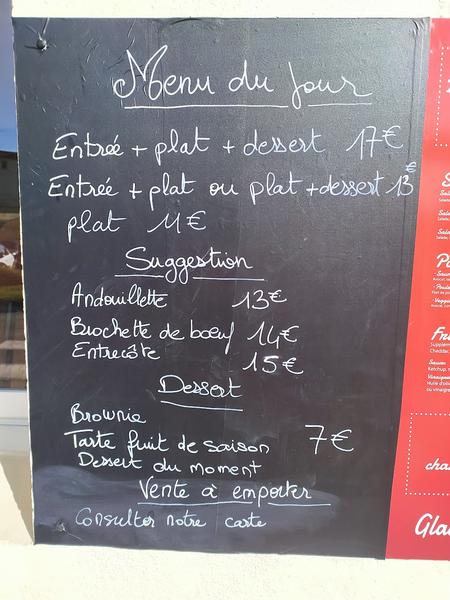 Menu du jour
Entrée + plat + dessert 17€
Entrée + plat ou plat + dessert 13€
plat 11€
Suggestion
Andouillette 13€
Brochette de bœuf 14€
Entrecôte 15€
Dessert
Brownie
Tarte fruit de saison 7€
Dessert du moment
Vente à emporter
Consulter notre carte